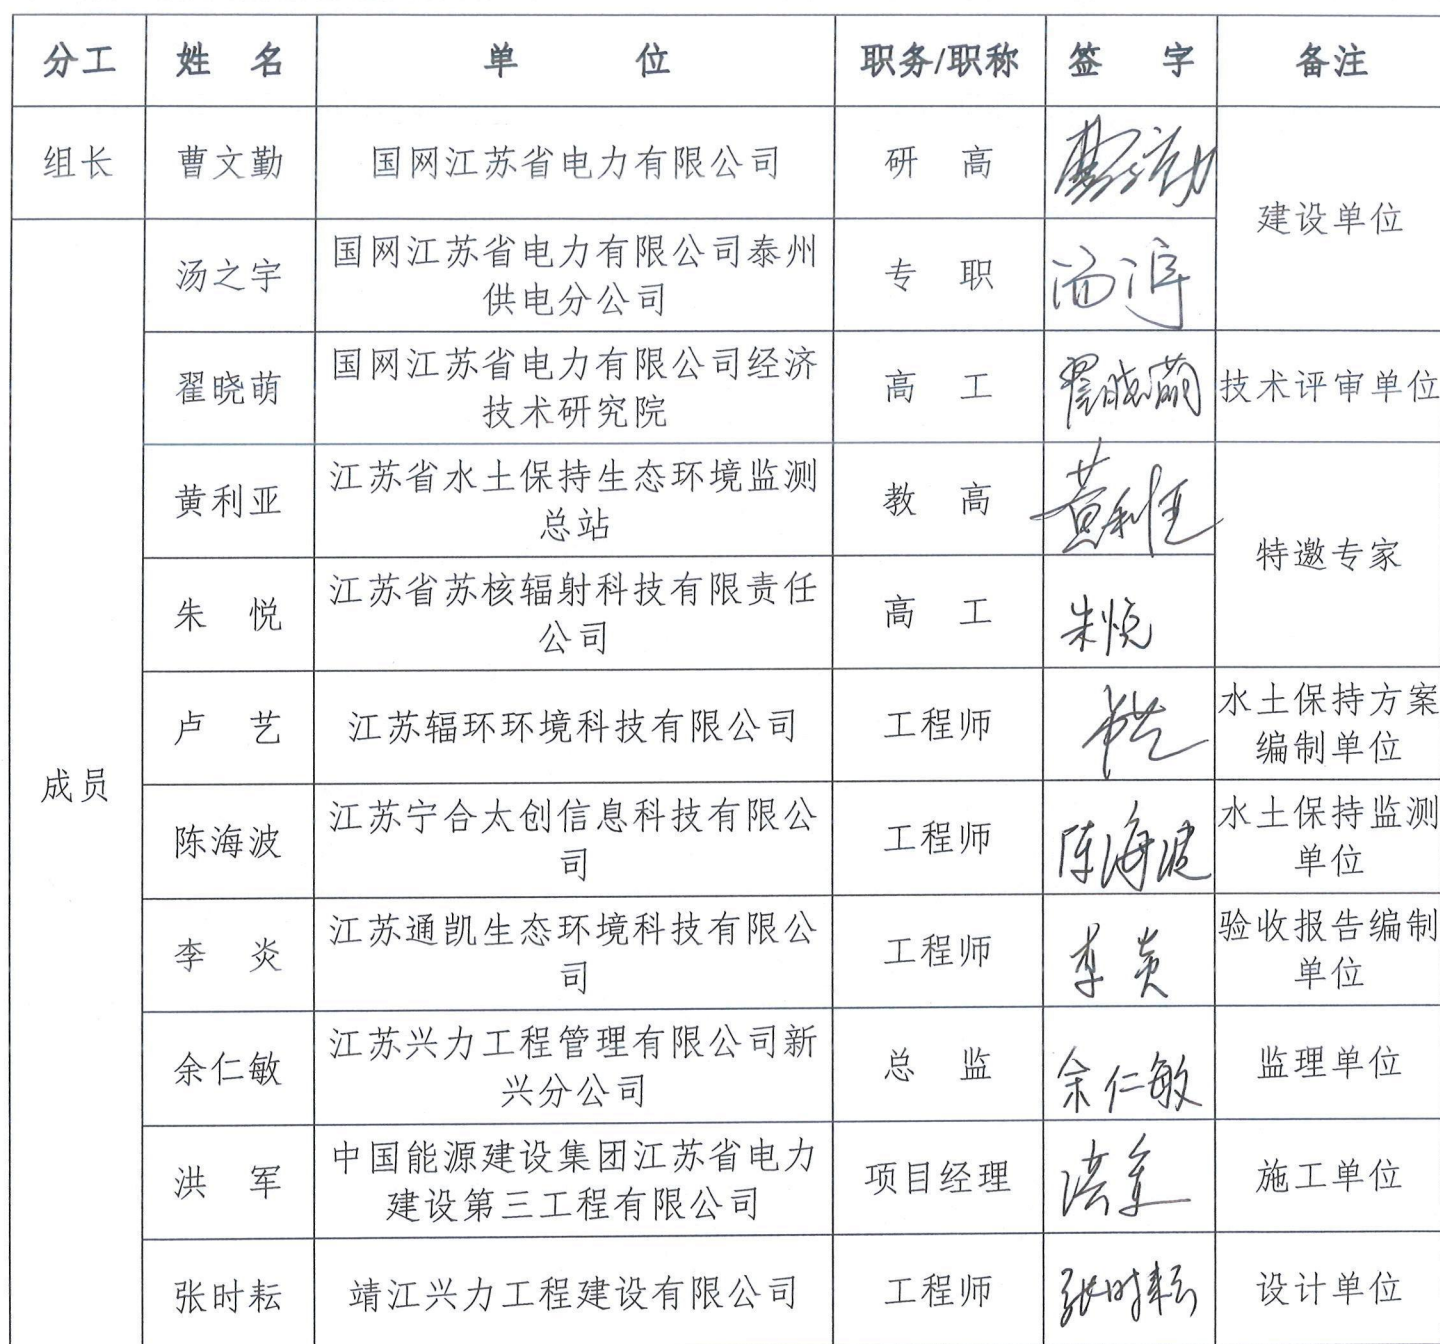 分工 姓 名 单 位 职务/职称 签 字 备注
组长 曹文勤 国网江苏省电力有限公司 研 高 曹文勤
建设单位
成员
汤之宇 国网江苏省电力有限公司泰州
供电分公司 专 职
翟晓萌 国网江苏省电力有限公司经济
技术研究院 高 工 翟晓萌 技术评审单位
黄利亚 江苏省水土保持生态环境监测
总站 教 高 黄利亚
特邀专家
朱 悦 江苏省苏核辐射科技有限责任
公司 高 工 朱悦
卢 艺 江苏辐环环境科技有限公司 工程师 卢艺 水土保持方案
编制单位
陈海波 江苏宁合太创信息科技有限公
司 工程师 陈海波 水土保持监测
单位
李 炎 江苏通凯生态环境科技有限公
司 工程师 李炎 验收报告编制
单位
余仁敏 江苏兴力工程管理有限公司新
兴分公司 总 监 余仁敏 监理单位
洪 军 中国能源建设集团江苏省电力
建设第三工程有限公司 项目经理 洪军 施工单位
张时耘 靖江兴力工程建设有限公司 工程师 张时耘 设计单位